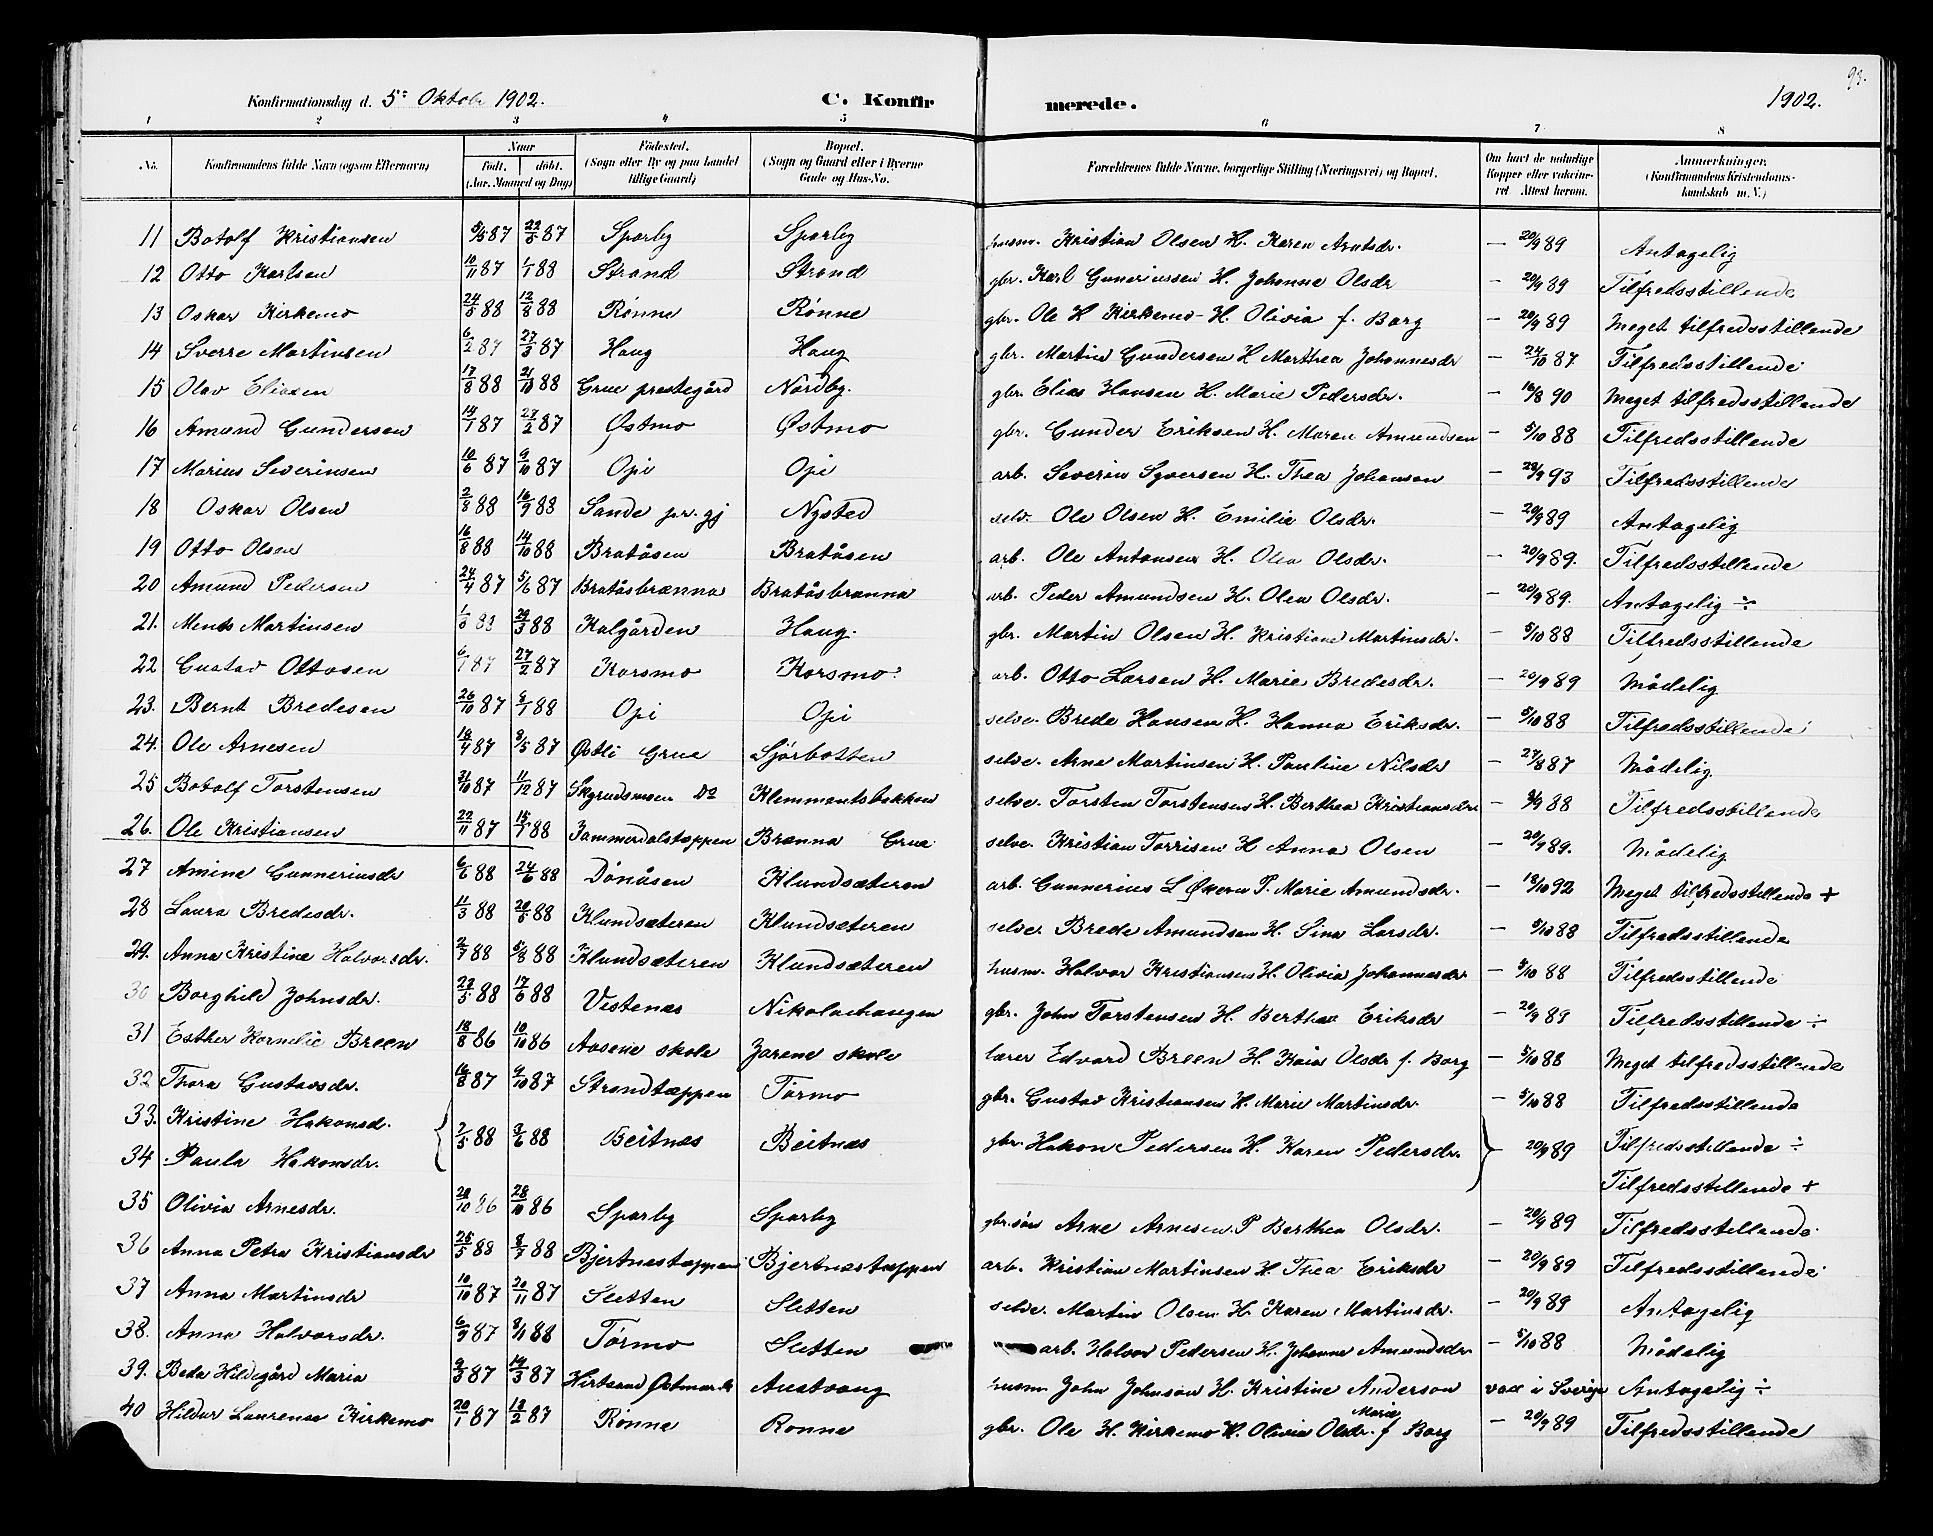 93.
Konfirmationsdag d. 5te Oktob. 1902. C. Konfir merede. 1902.
1 2 3 4 5 6 7 8
No. Konfirmandens fulde Navn (ogsaa Efternavn) Naar Født. døbt. (Aar, Maaned og Dag) Fødested. (Sogn eller By og paa Landet tillige Gaard) Bopæl. (Sogn og Gaard eller i Byerne Gade og Hus-No. Forældrenes fulde Navne, borgerlige Stilling (Næringsvei) og Bopæl. Om havt de naturlige Kopper eller vakcineret. Attest herom. Anmerkninger. (Konfirmandens Kristendomskundskab m. V.)
11 Botolf Kristiansen 87 22/5 87 Sparby Sparby husm. Kristian Olsen H. Karen Arntsdr. — 20/9 89 Antagelig
12 Otto Karlsen 10/11 87 1/1 88 Strand Strand gbr. Karl Guneriussen H. Johanne Olsdr — 20/9 89 Tilfredsstillende
13 Oskar Kirkemo 24/5 88 12/8 88 Rønne Rønne gbr. Ole H Kirkemo - H. Olivia f. Borg — 20/9 89 Meget tilfredsstillende
14 Sverre Martinsen 6/2 87 27/3 87 Haug Haug gbr. Martin Gundersen H Marthea Johannesdr — 24/10 87 Tilfredsstillende
15 Olav Eliasen 17/8 88 21/10 88 Grue prestegård Nordby. gbr. Elias Hansen H. Marie Pedersdr. — 16/8 90 Meget tilfredsstillende
16 Amund Gundersen 14/1 87 27/2 87 Østmo Østmo gbr. Gunder Eriksen H. Maren Amundsen — 5/10 88 Tilfredsstillende
17 Marius Severinsen 10/6 87 9/10 87 Opi Opi arb. Severin Syversen H. Thea Johansen — 28/9 93 Tilfredsstillende
18 Oskar Olsen 2/8 88 16/9 88 Sande pr. gj Nysted selv. Ole Olsen H. Emilie Olsdr. — 20/9 89 Antagelig
19 Otto Olsen 16/8 88 14/10 88 Bratåsen Bratåsen arb. Ole Antonsen H. Olea Olsdr. — 20/9 89. Tilfredsstillende
20 Amund Pedersen 24/4 87 5/6 87 Bratåsbrænna Bratåsbrænna arb. Peder Amundsen H. Olea Olsdr. — 20/9 89. Antagelig ÷
21. Ments Martinsen 88 Kalgården Haug. gbr. Martin Olsen H. Kristiane Martinsdr. — 5/10 88 Tilfredsstillende
22 Gustav Ottosen 6/1 87 27/2 87 Korsmo Korsmo. arb. Otto Larsen H. Marie Bredesdr. — 20/9 89 Mådelig
23. Bernt Bredesen 26/10 87 8/1 88 Opi Opi selve. Brede Hansen H. Hanna Eriksdr. — 5/10 88 Tilfredsstillende
24. Ole Arnesen 18/4 87 8/5 87 Østli Grue Sjørbotten selve. Arne Martinsen H. Pauline Nilsdr — 27/8 87 Mådelig
25 Botolf Torstensen 31/10 87 11/12 87 Skyrudsmoen Do Klemmentsbakken selve. Torsten Torstensen H. Berthea Kristiansdr — 88 Tilfredsstillende
26. Ole Kristiansen 22/11 87 15/1 88 Jammerdalstoppen Brænna Grue selve. Kristian Torrisen H Anna Olsen — 20/9 89. Mådelig
27 Amine Gunneriusdr 6/6 88 24/6 88 Dønåsen Klundsæteren arb. Gunnerius L. P. Marie Amundsdr. — 18/10 92 Meget tilfredsstillende +
28 Laura Bredesdr. 11/3 88 20/5 88 Klundsæteren Klundsæteren selve. Brede Amundsen H. Sina Larsdr. — 5/10 88 Tilfredsstillende
29. Anna Kristine Halvorsdr. 2/7 88 5/8 88 Klundsæteren Klundsæteren husm. Halvor Kristiansen H. Olivia Johannesdr — 5/10 88 Tilfredsstillende
30 Borghild Johnsdr. 88 17/6 88 Vestenæs Nikolaihaugen gbr. John Torstensen H. Berthea Eriksdr — 20/9 89 Tilfredsstillende ÷
31 Esther Kornelie Breen 18/8 86 10/10 86 Aasene skole Jarene skole lærer Edvard Breen H. Kaia Olsdr f. Borg — 5/10 88 Meget tilfredsstillende
32 Thora Gustavsdr. 14/8 87 9/10 87 Strandtæppen Tørmo gbr. Gustav Kristiansen H. Marie Martinsdr. — 5/10 88 Tilfredsstillende
33. Kristine Hakonsd. 2/5 88 3/6 88 Beitnæs Beitnæs gbr. Hakon Pedersen H. Karen Pedersdr. — 20/9 89 Tilfredsstillende ÷
34 Paula Hakonsdr. Tilfredsstillende +
35 Olivia Arnesdr. 20/10 86 28/10 86 Sparby Sparby gbr.søn Arne Arnesen P Berthea Olsdr. — 20/9 89 Tilfredsstillende
36 Anna Petra Kristiansdr 25/5 88 8/7 88 Bjertnæstæppen Bjertnæstæppen arb. Kristian Martinsen H. Thea Eriksdr — 20/9 89 Tilfredsstillende
37 Anna Martinsdr 10/10 87 20/11 87 Sletten Sletten selve. Martin Olsen H. Karen Martinsdr. — 20/9 89 Antagelig
38. Anna Halvorsdr. 6/9 87 8/1 88 Tørmo Sletten arb. Halvor Pedersen H. Johanne Amundsdr — 5/10 88 Mådelig
39. Beda Hildegård Maria 2/3 87 19/3 87 Hirtsand Østmark Austvang husm John Johnson H. Kristine Anderson vacc i Sverige Antagelig ÷
40 Hildur Laurense Kirkemo 20/1 87 13/2 87 Rønne Rønne gbr. Ole H. Kirkemo H. Olivia Marie Olsdr. f Borg — 20/9 89 Tilfredsstillende